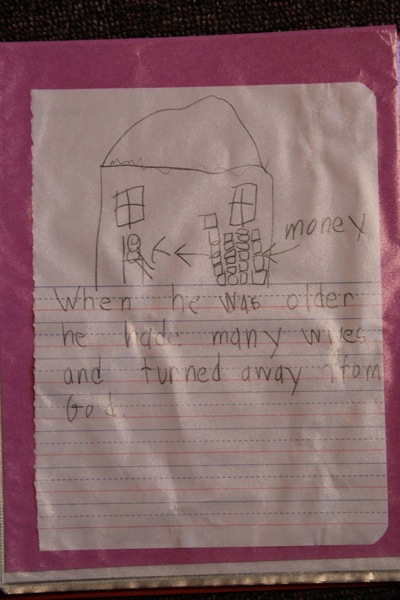 money
When he was older
he hade many wives
and turned away from
God.